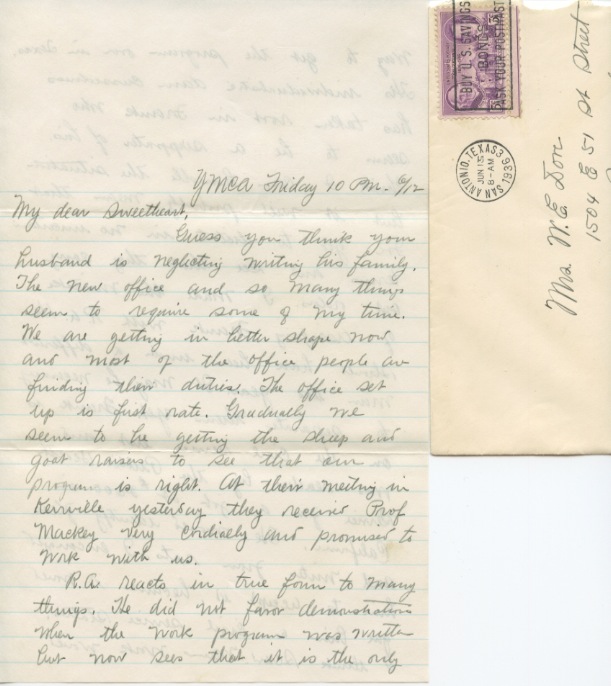 YMCA Friday 10 P.M. 6/12
My dear Sweetheart,
Guess you think your
husband is neglecting writing his family.
The new office and so many things
seem to require some of my time.
We are getting in better shape now
and most of the office people are
finding their duties. The office set
up is first rate. Gradually we
seem to be getting the sheep and
goat raisers to see that our
program is right. At their meeting in
Kerrville yesterday they received Prof
Mackey very cordially and promised to
work with us.
R.A. reacts in true form to many
things. He did not favor demonstrations
when the work program was written
but now sees that it is the only
BUY U.S. SAVINGS
BONDS
ASK YOUR POSTMASTER
SAN ANTONIO, TEXAS 3
JUN 13
8-AM
1936
Mrs. W. E.
1504 E 51 St Street